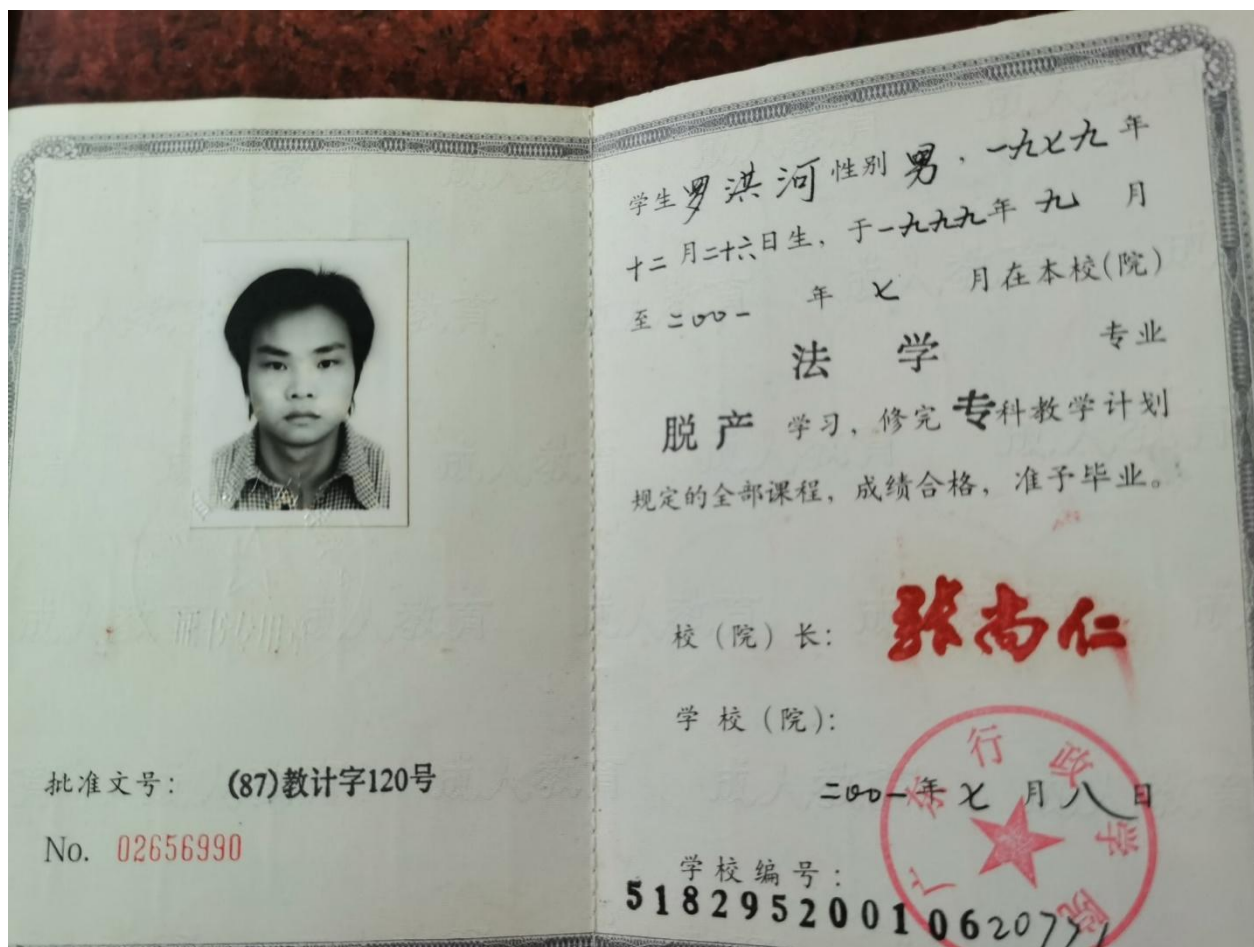 批准文号： (87)教计字120号
No. 02656990
学生 罗洪河 性别 男，一九七九 年
十二 月二十六日生，于一九九九年 九 月
至 二〇〇一 年 七 月在本校(院)
法 学 专业
脱产 学习，修完 专科教学计划
规定的全部课程，成绩合格，准予毕业。
校（院）长： 张尚仁
学 校（院）：
广东行政学院
二〇〇一年 七 月 八 日
学校编号：
518295200106
成人教育